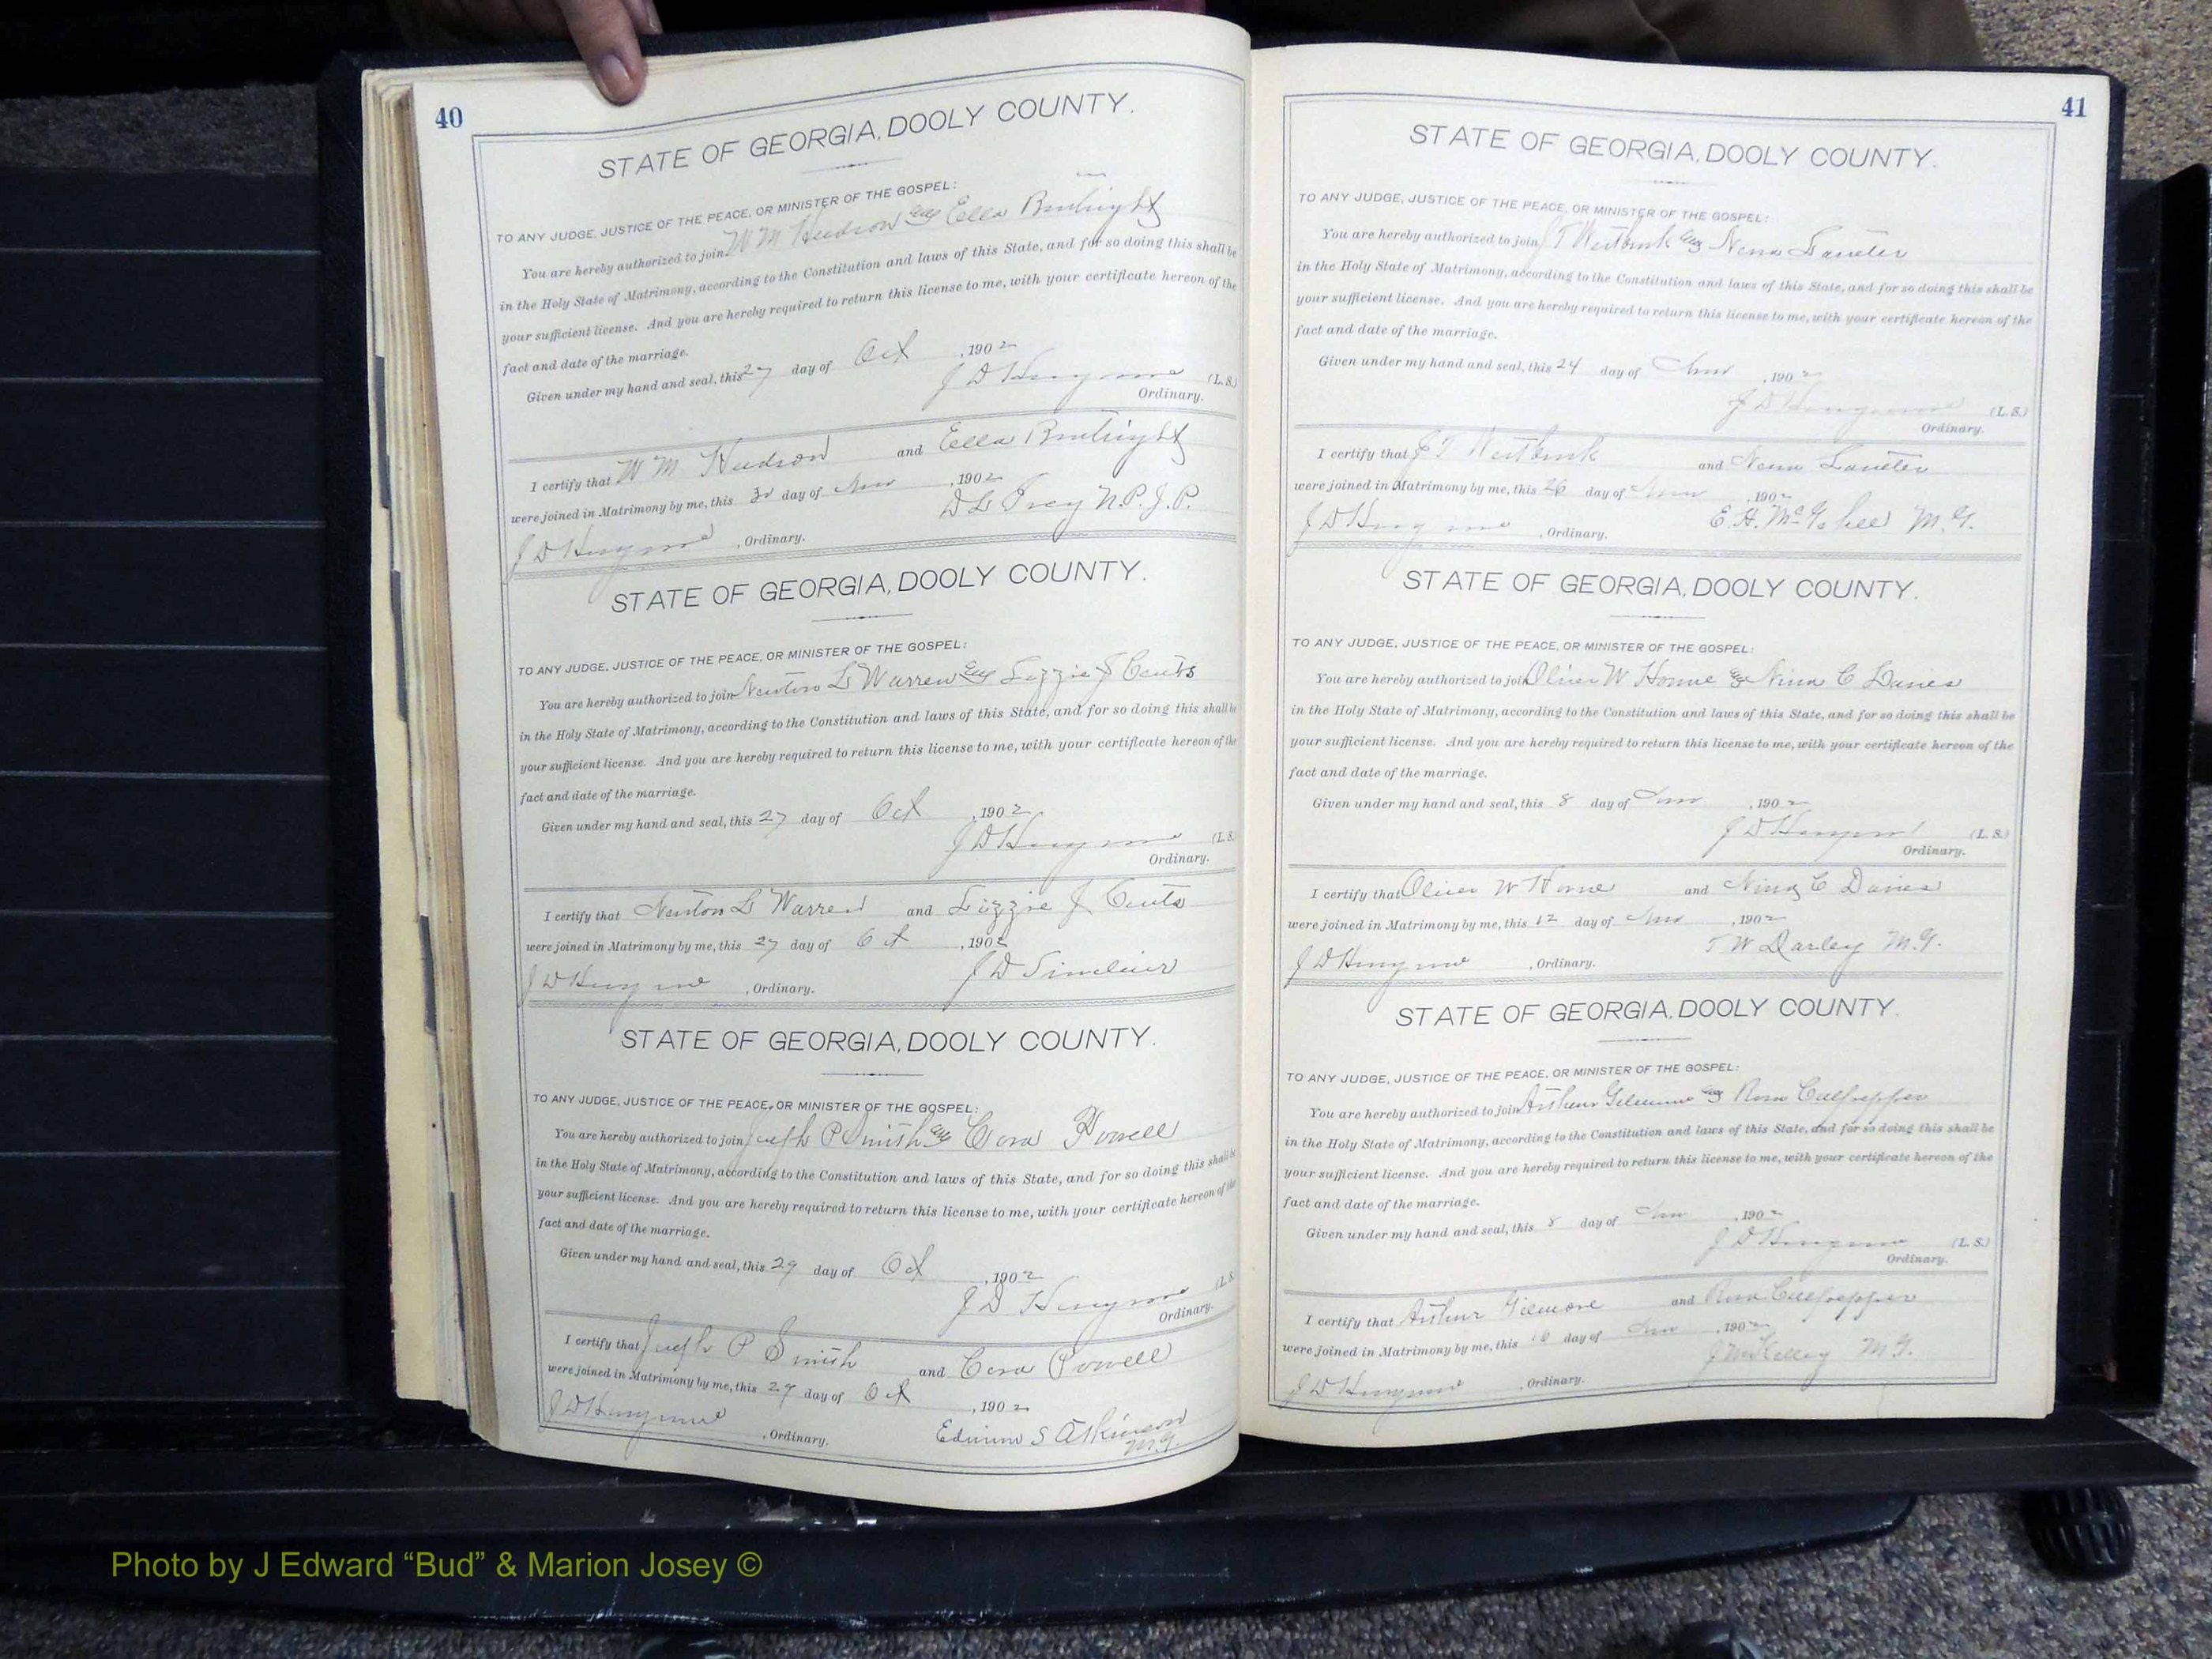 40
STATE OF GEORGIA, DOOLY COUNTY.
TO ANY JUDGE, JUSTICE OF THE PEACE, OR MINISTER OF THE GOSPEL:
You are hereby authorized to join W M Hudson and Ella
in the Holy State of Matrimony, according to the Constitution and laws of this State, and for so doing this shall be
your sufficient license. And you are hereby required to return this license to me, with your certificate hereon of the
fact and date of the marriage.
Given under my hand and seal, this 27 day of Oct, 1902
J D (L. S.)
Ordinary.
I certify that W M Hudson and Ella
were joined in Matrimony by me, this 3d day of Nov, 1902
D L N.P. J.P.
J D , Ordinary.
STATE OF GEORGIA, DOOLY COUNTY.
TO ANY JUDGE, JUSTICE OF THE PEACE, OR MINISTER OF THE GOSPEL:
You are hereby authorized to join Newton L Warren and Lizzie J
in the Holy State of Matrimony, according to the Constitution and laws of this State, and for so doing this shall be
your sufficient license. And you are hereby required to return this license to me, with your certificate hereon of the
fact and date of the marriage.
Given under my hand and seal, this 27 day of Oct, 1902
J D (L. S.)
Ordinary.
I certify that Newton L Warren and Lizzie J
were joined in Matrimony by me, this 27 day of Oct, 1902
J D Sinclair
J D , Ordinary.
STATE OF GEORGIA, DOOLY COUNTY.
TO ANY JUDGE, JUSTICE OF THE PEACE, OR MINISTER OF THE GOSPEL:
You are hereby authorized to join Joseph P Smith and Cora Powell
in the Holy State of Matrimony, according to the Constitution and laws of this State, and for so doing this shall be
your sufficient license. And you are hereby required to return this license to me, with your certificate hereon of the
fact and date of the marriage.
Given under my hand and seal, this 29 day of Oct, 1902
J D (L. S.
Ordinary.
I certify that Joseph P Smith and Cora Powell
were joined in Matrimony by me, this 29 day of Oct, 1902
J D , Ordinary.
S Atkinson
M.G.
41
STATE OF GEORGIA, DOOLY COUNTY.
TO ANY JUDGE, JUSTICE OF THE PEACE, OR MINISTER OF THE GOSPEL:
You are hereby authorized to join J T Westbrook and
in the Holy State of Matrimony, according to the Constitution and laws of this State, and for so doing this shall be
your sufficient license. And you are hereby required to return this license to me, with your certificate hereon of the
fact and date of the marriage.
Given under my hand and seal, this 24 day of Nov, 1902
J D (L. S.)
Ordinary.
I certify that J T Westbrook and
were joined in Matrimony by me, this 26 day of Nov, 1902
E. H. McGehee M.G.
J D , Ordinary.
STATE OF GEORGIA, DOOLY COUNTY.
TO ANY JUDGE, JUSTICE OF THE PEACE, OR MINISTER OF THE GOSPEL:
You are hereby authorized to join Oliver W Horne and Nina C Davies
in the Holy State of Matrimony, according to the Constitution and laws of this State, and for so doing this shall be
your sufficient license. And you are hereby required to return this license to me, with your certificate hereon of the
fact and date of the marriage.
Given under my hand and seal, this 8 day of Nov, 1902
J D (L. S.)
Ordinary.
I certify that Oliver W Horne and Nina C Davies
were joined in Matrimony by me, this 12 day of Nov, 1902
T W Darley M.G.
J D , Ordinary.
STATE OF GEORGIA, DOOLY COUNTY.
TO ANY JUDGE, JUSTICE OF THE PEACE, OR MINISTER OF THE GOSPEL:
You are hereby authorized to join Arthur Gilmore and Rosa Culpepper
in the Holy State of Matrimony, according to the Constitution and laws of this State, and for so doing this shall be
your sufficient license. And you are hereby required to return this license to me, with your certificate hereon of the
fact and date of the marriage.
Given under my hand and seal, this 8 day of Nov, 1902
J D (L. S.)
Ordinary.
I certify that Arthur Gilmore and Rosa Culpepper
were joined in Matrimony by me, this day of Nov, 1902
J M Kelley M.G.
J D , Ordinary.
Photo by J Edward “Bud” & Marion Josey ©